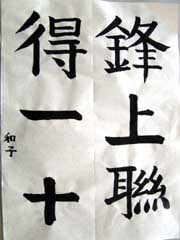 鋒上聯
得一十
和子